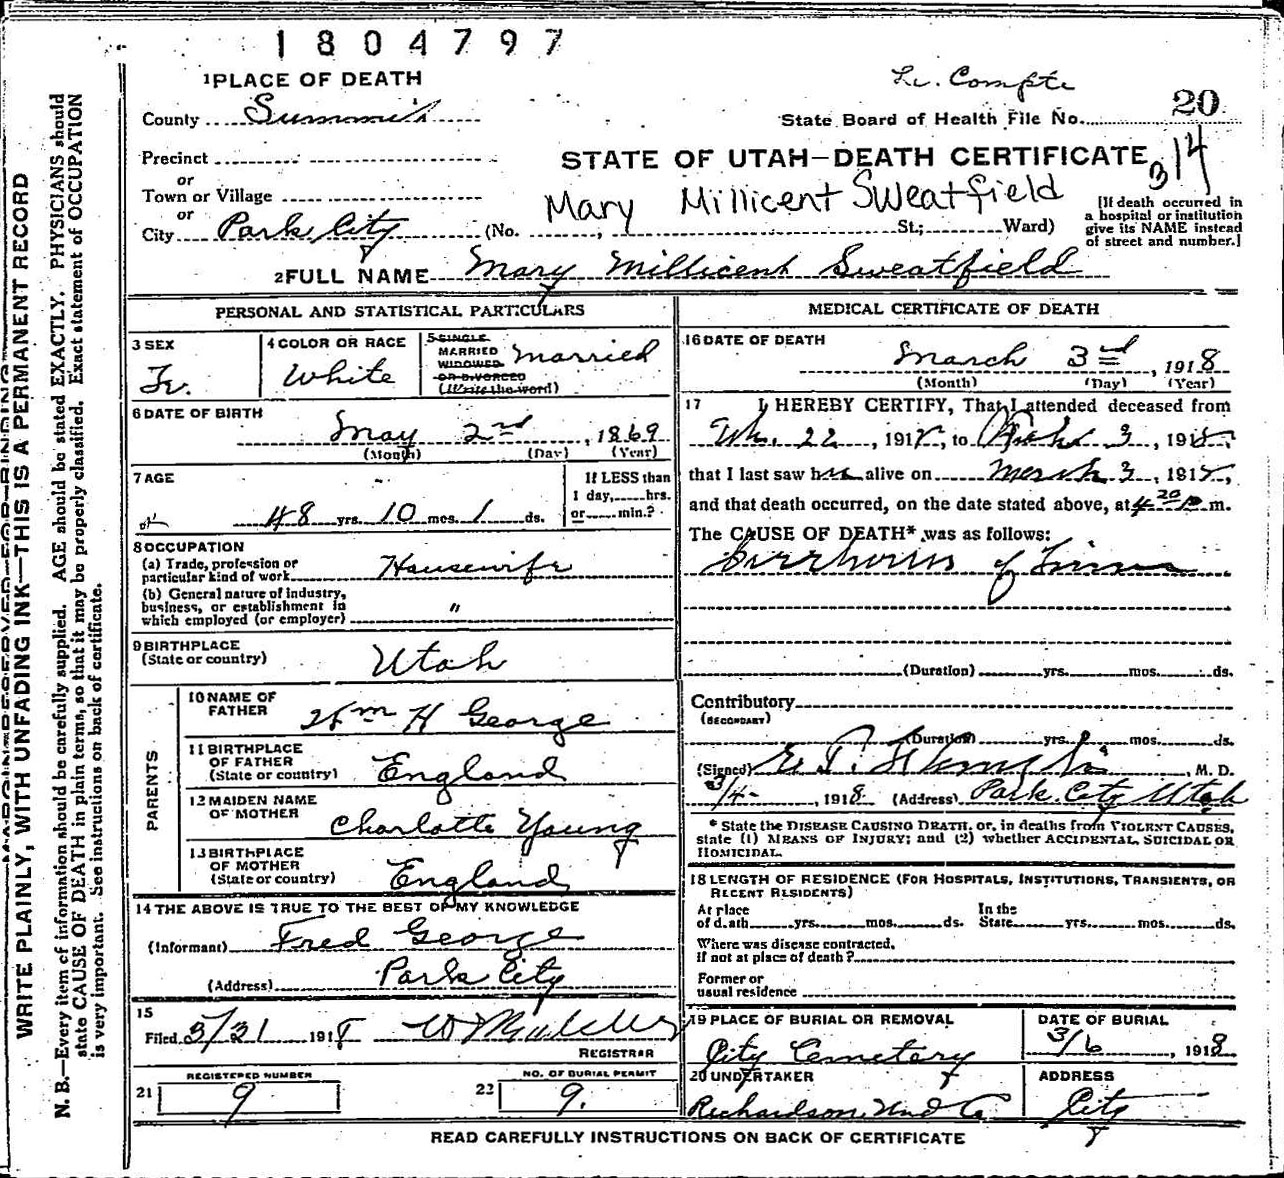 1804797
1 PLACE OF DEATH
County Summit
Precinct
or
Town or Village
or
City Park City (No. , St.; Ward)
State Board of Health File No. 20
314
STATE OF UTAH—DEATH CERTIFICATE
Mary Millicent Sweatfield
[If death occurred in
a hospital or institution
give its NAME instead
of street and number.]
2 FULL NAME Mary Millicent Sweatfield
PERSONAL AND STATISTICAL PARTICULARS
3 SEX
4 COLOR OR RACE
White
5 SINGLE
MARRIED
WIDOWED
OR DIVORCED
(Write the word)
Married
6 DATE OF BIRTH
May 2nd, 1869
(Month) (Day) (Year)
7 AGE
48 yrs. 10 mos. 1 ds.
If LESS than
1 day, hrs.
or min.?
8 OCCUPATION
(a) Trade, profession or
particular kind of work Housewife
(b) General nature of industry,
business, or establishment in
which employed (or employer) "
9 BIRTHPLACE
(State or country) Utah
PARENTS
10 NAME OF
FATHER Wm H George
11 BIRTHPLACE
OF FATHER
(State or country) England
12 MAIDEN NAME
OF MOTHER Charlotte Young
13 BIRTHPLACE
OF MOTHER
(State or country) England
14 THE ABOVE IS TRUE TO THE BEST OF MY KNOWLEDGE
(Informant) Fred George
(Address) Park City
15
Filed 3/31 1918
REGISTRAR
REGISTERED NUMBER
21 9
NO. OF BURIAL PERMIT
22 9.
MEDICAL CERTIFICATE OF DEATH
16 DATE OF DEATH
March 3rd, 1918
(Month) (Day) (Year)
17 I HEREBY CERTIFY, That I attended deceased from
22, 1918, to 3, 1918,
that I last saw her alive on March 3, 1918,
and that death occurred, on the date stated above, at 4 20 p m.
The CAUSE OF DEATH* was as follows:
Cirrhosis of Liver
(Duration) yrs. mos. ds.
Contributory
(SECONDARY)
(Duration) yrs. mos. ds.
(Signed) , M. D.
3/4, 1918 (Address) Park City Utah
* State the DISEASE CAUSING DEATH, or, in deaths from VIOLENT CAUSES,
state (1) MEANS OF INJURY; and (2) whether ACCIDENTAL, SUICIDAL OR
HOMICIDAL.
18 LENGTH OF RESIDENCE (FOR HOSPITALS, INSTITUTIONS, TRANSIENTS, OR
RECENT RESIDENTS)
At place
of death yrs. mos. ds.
In the
State yrs. mos. ds.
Where was disease contracted,
if not at place of death?
Former or
usual residence
19 PLACE OF BURIAL OR REMOVAL
City Cemetery
DATE OF BURIAL
3/6, 1918
20 UNDERTAKER
Richardson Und Co.
ADDRESS
City
READ CAREFULLY INSTRUCTIONS ON BACK OF CERTIFICATE
WRITE PLAINLY, WITH UNFADING INK—THIS IS A PERMANENT RECORD
N. B.—Every item of information should be carefully supplied. AGE should be stated EXACTLY. PHYSICIANS should
state CAUSE OF DEATH in plain terms, so that it may be properly classified. Exact statement of OCCUPATION
is very important. See instructions on back of certificate.